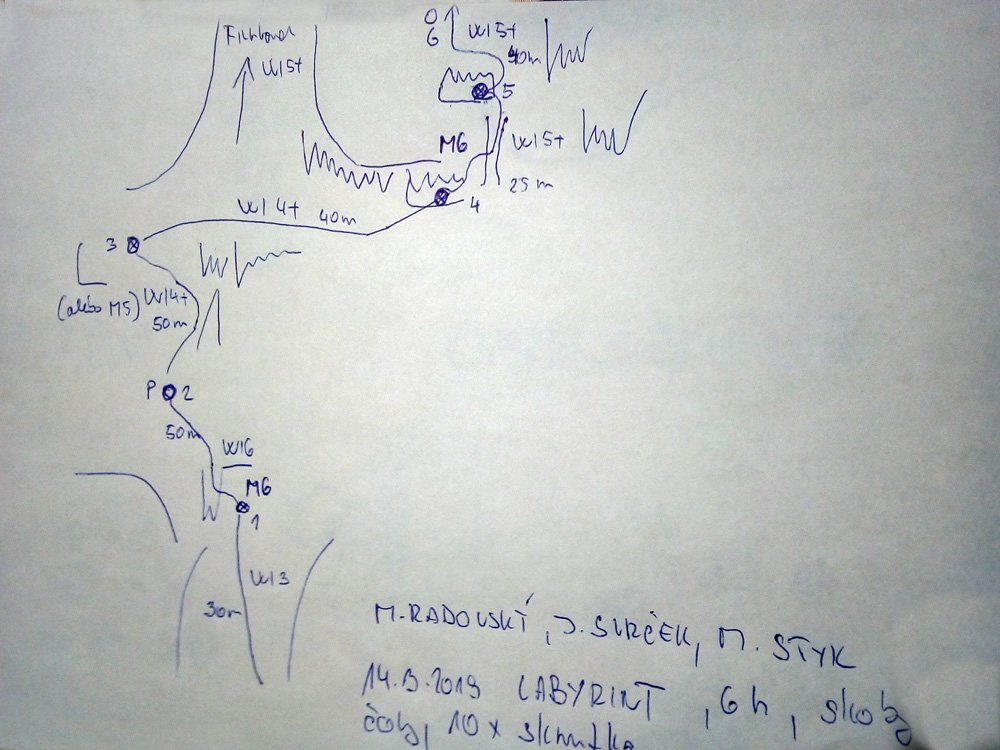 O
6
WI5+
40m
WI5+
5
M6
WI5+
25m
4
WI4+ 40m
3
(alebo M5) WI4+
50m
P 2
50m
WI6
M6
1
WI3
30m
M. RADOVSKÝ, J. SVRČEK, M. STYK
14.3.2019 LABYRINT, 6h, skoby
čoky, 10x skrutka